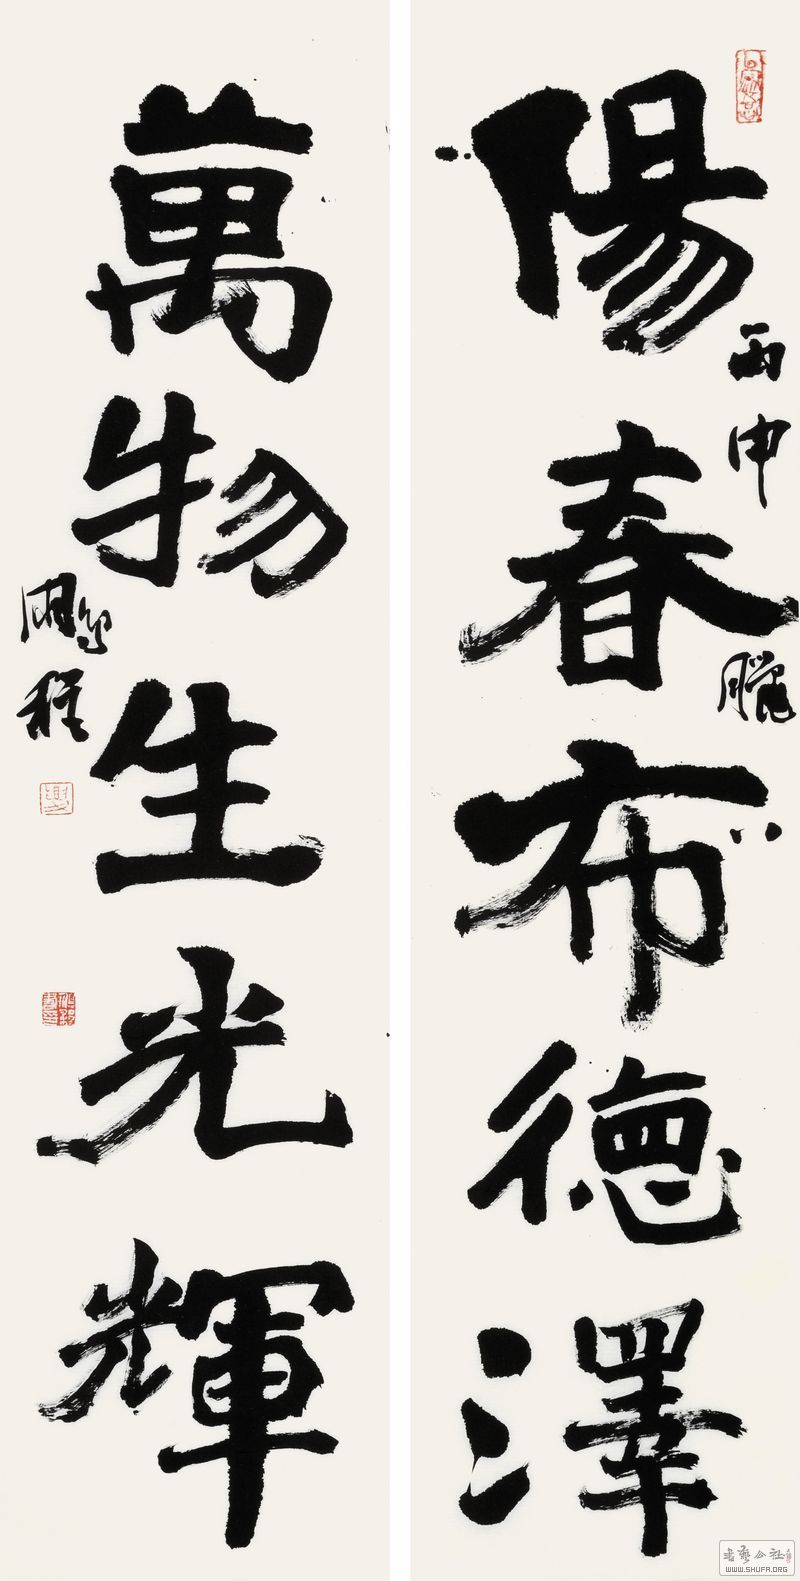 陽春布德澤
丙申
臘
萬物生光輝
鵬程
書藝公社
WWW.SHUFA.ORG